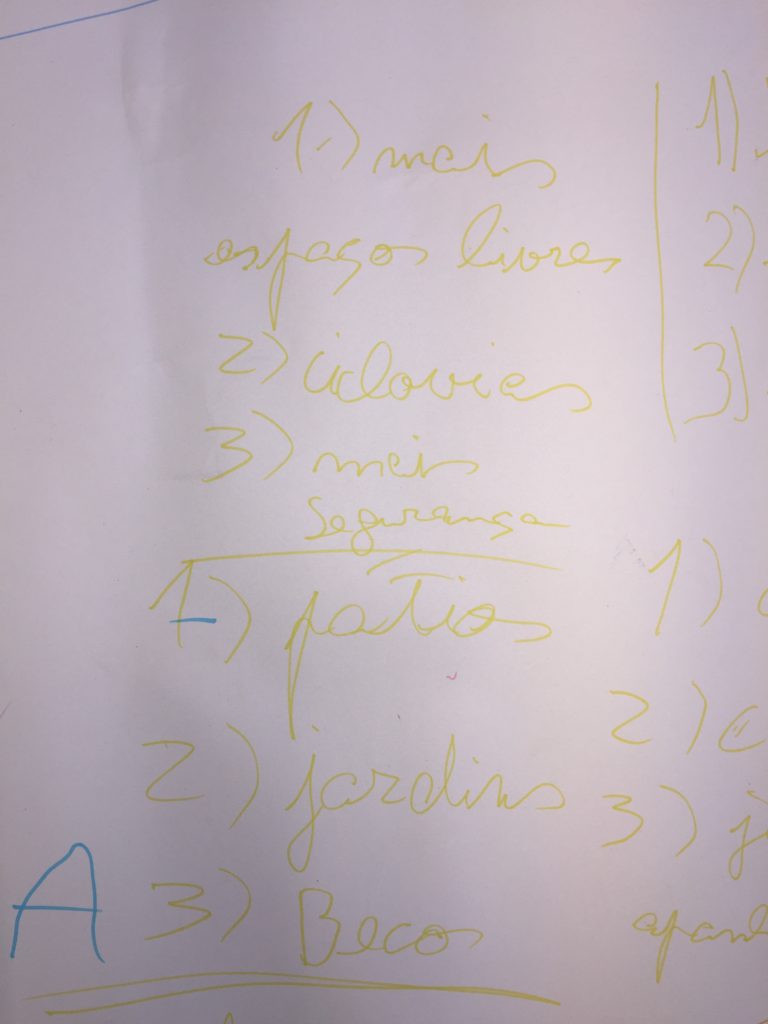 1.) mais
espaços livres
2) ciclovias
3) mais
Segurança
1) patios
2) jardins
A 3) Becos
1)
2)
3)
1)
2)
3)